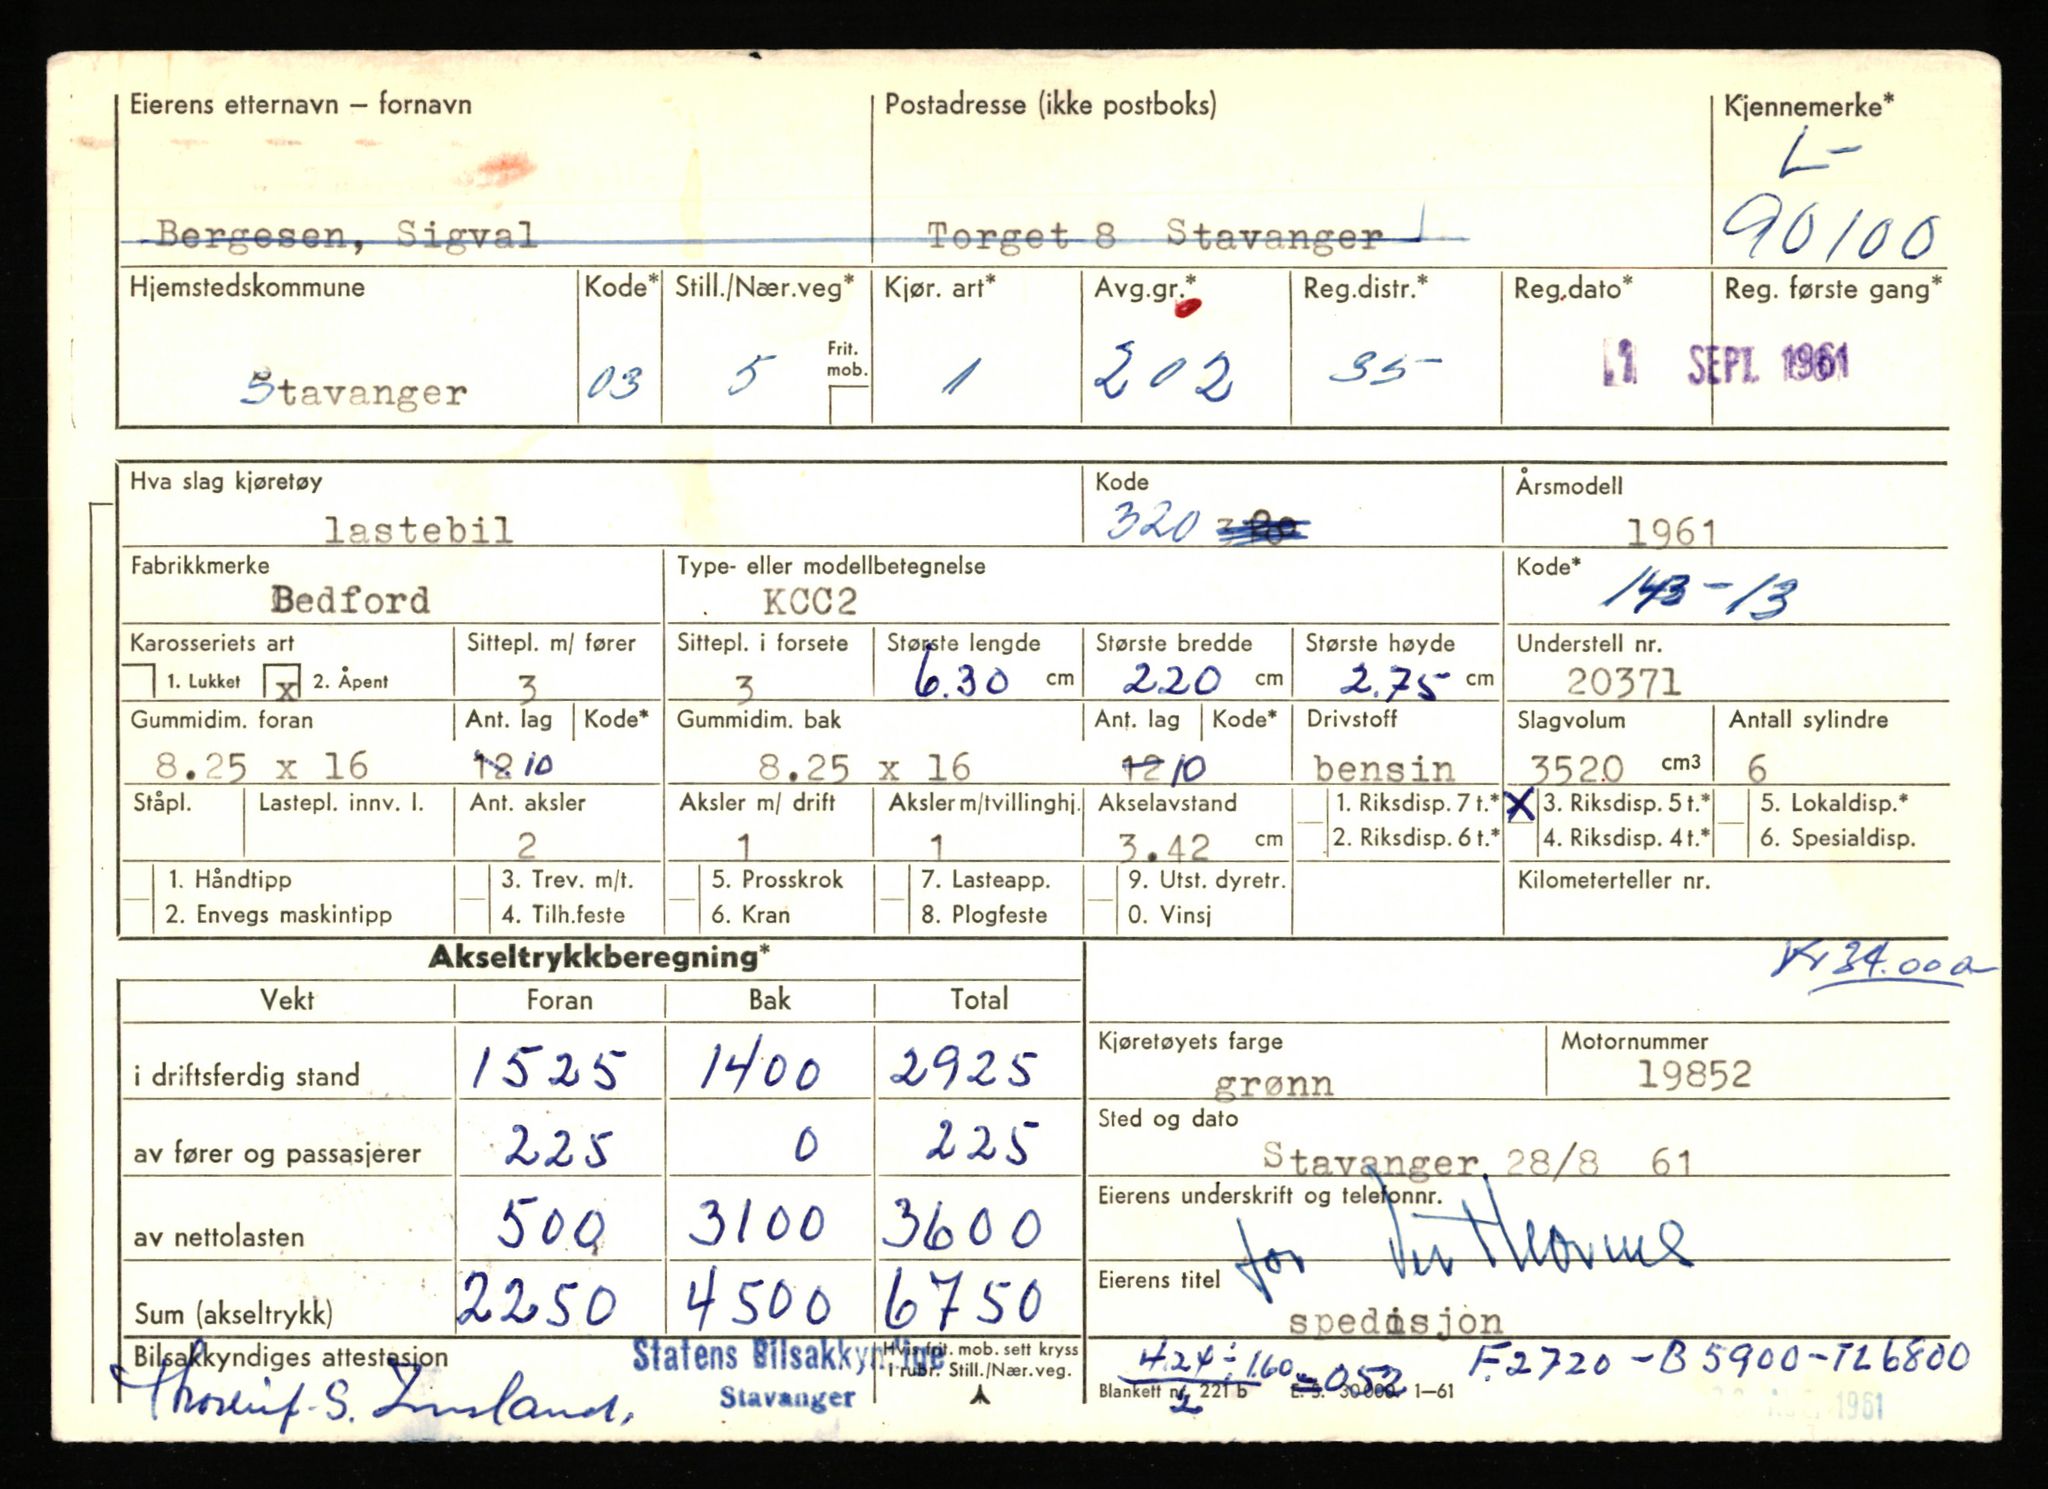 Eierens etternavn – fornavn Postadresse (ikke postboks) Kjennemerke*
L-
Bergesen, Sigval Torget 8 Stavanger 90100
Hjemstedskommune Kode* Still./Nær.veg* Kjør. art* Avg.gr.* Reg.distr.* Reg.dato* Reg. første gang*
Frit. mob.
Stavanger 03 5 1 202 35 1 SEPT. 1961
Hva slag kjøretøy Kode Årsmodell
lastebil 320 1961
Fabrikkmerke Type- eller modellbetegnelse Kode*
Bedford KCC2 143-13
Karosseriets art Sittepl. m/ fører Sittepl. i forsete Største lengde Største bredde Største høyde Understell nr.
1. Lukket x 2. Åpent 3 3 6.30 cm 220 cm 2.75 cm 20371
Gummidim. foran Ant. lag Kode* Gummidim. bak Ant. lag Kode* Drivstoff Slagvolum Antall sylindre
8.25 x 16 12 10 8.25 x 16 12 10 bensin 3520 cm3 6
Ståpl. Lastepl. innv. l. Ant. aksler Aksler m/ drift Aksler m/tvillinghj. Akselavstand 1. Riksdisp. 7 t.* X 3. Riksdisp. 5 t.* 5. Lokaldisp.*
2 1 1 3.42 cm 2. Riksdisp. 6 t.* 4. Riksdisp. 4 t.* 6. Spesialdisp.
1. Håndtipp 3. Trev. m/t. 5. Prosskrok 7. Lasteapp. 9. Utst. dyretr. Kilometerteller nr.
2. Envegs maskintipp 4. Tilh.feste 6. Kran 8. Plogfeste 0. Vinsj
Akseltrykkberegning* Kr 34.000
Vekt Foran Bak Total
Kjøretøyets farge Motornummer
i driftsferdig stand 1525 1400 2925 grønn 19852
Sted og dato
av fører og passasjerer 225 0 225 Stavanger 28/8 61
Eierens underskrift og telefonnr.
av nettolasten 500 3100 3600 for
Eierens titel
Sum (akseltrykk) 2250 4500 6750 spedisjon
Bilsakkyndiges attestasjon Statens Bilsakkyndige Hvis frit. mob. sett kryss 4.24 ÷ 160 = 052 F.2720 - B 5900 - TL 6800
i rubr. Still./Nær.veg. 2
Stavanger Blankett nr. 221 b E. S. 30 000. 1–61 1961